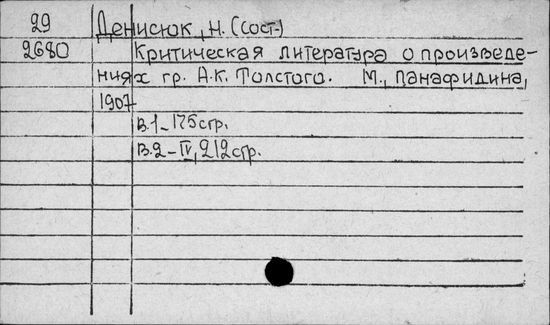 29 Денисюк, Н. (сост.)
2680 Критическая литература о произведе-
ниях гр. А.К. Толстого. М., Панафидина,
1907
В.1_175стр.
В.2_IV, 212стр.